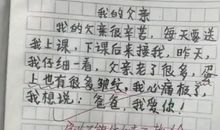 我的父亲
我的父亲很辛苦，每天要送
我上课，下课后来接我，昨天，
我仔细一看，父亲老了很多，
上也有很多皱纹，我心痛极了
我想说：爸爸，我爱你！